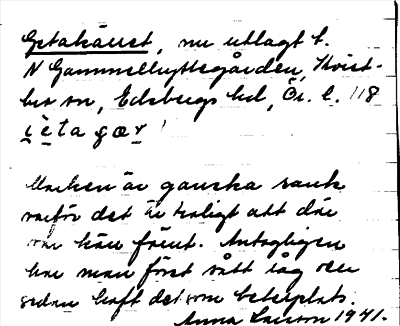 Getakäret, nu utlagt t.
N Gammelhyttegården, Kvist-
bro sn, Edsbergs hd, Ör. l. 118
Marken är ganska sank
varför det är troligt att där
var kärr förut. Antagligen
har man först sått säg den
sedan haft det som betesplats.
Anna Larsson 1941.